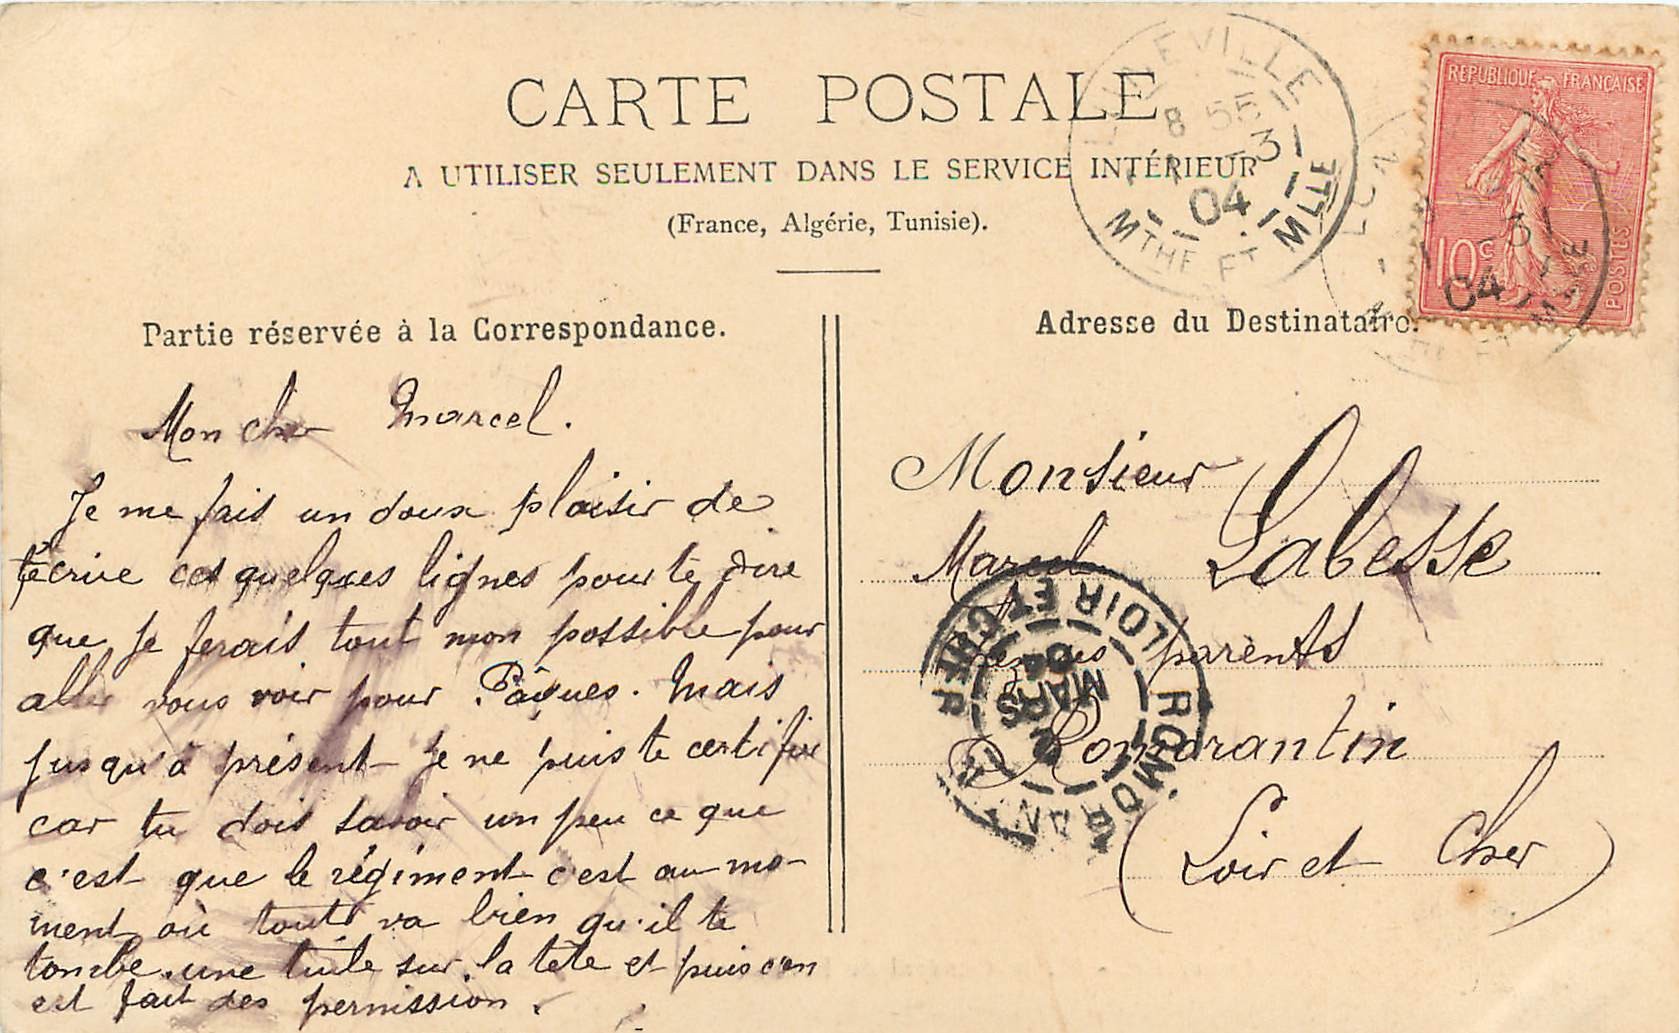 CARTE POSTALE
A UTILISER SEULEMENT DANS LE SERVICE INTÉRIEUR
(France, Algérie, Tunisie).
LUNEVILLE
8 55
1 -3
04
MTHE ET MLLE
REPUBLIQUE FRANÇAISE
10c
POSTES
04
Partie réservée à la Correspondance.
Mon cher Marcel.
Je me fais un doux plaisir de
t'écrire ces quelques lignes pour te dire
que je ferais tout mon possible pour
aller vous voir pour Pâques. Mais
jusqu'à présent je ne puis te certifier
car tu dois savoir un peu ce que
c'est que le régiment c'est au mo-
ment où tout va bien qu'il te
tombe une tuile sur la tête et puis c'en
est fait des permission.
Adresse du Destinataire.
Monsieur
Marcel Labesse
ses parents
Romorantin
(Loir et Cher)
ROMORANTIN
LOIR ET CHER
2
MARS
04